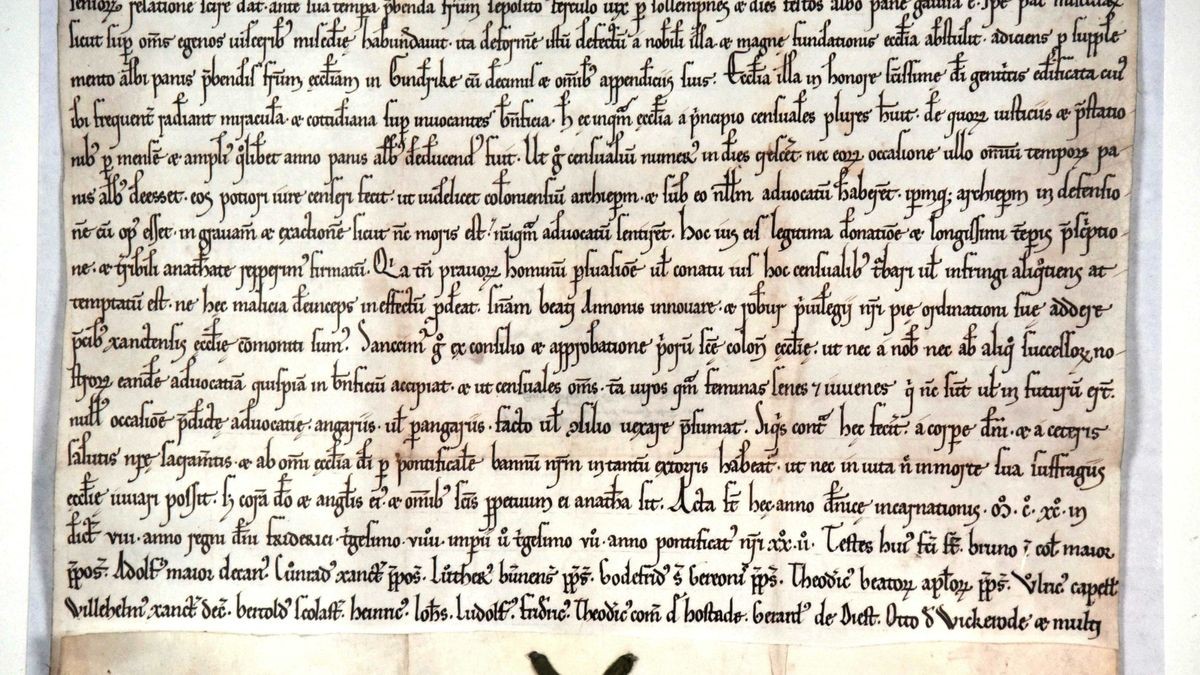 seniorum relatione scire dat. ante sua tempora p̄benda fr̄um
sicut sup̄ om̄s egenos uiscerib' mis̄edie habundauit. ita deforme istū defectū a nobili illa æ magne fundationis eccl̄ia abstulit. adiciens p supple
mento albi panis p̄bendis fr̄um eccl̄iam in Gundrike cū decimis æ om̄ib' appendiciis suis. Eccl̄ia illa in honore sc̄issime dī genit'cis edificata cui'
ibi frequent̄ radiant miracula. æ cottidiana sup̄ inuocantes bn̄ficia. h ec inquā eccl̄ia a p'ncipio censuales plures h̄uit. de quorꝝ iusticiis æ p̄statio
nib' p mense æ ampli' q'libet anno panis alb' deducend' fuit. Ut g censualiū numer' in dies cresc̄et. nec eorꝝ occasione ullo om̄iū temporꝝ pa
nis alb' deesset. eos potiori iure censeri fecit. ut uidelicet coloniensiū archiep̄m. æ sub eo null̄m aduocatū haberēt. ipm̄q; archiep̄m in defensio
ne cū op' esset. in grauam̄ æ exactione sicut nc̄ moris est. nūquā aduocatū sentirēt. Hoc ius eis legitima donatioe æ longissimi tp̄is p̄sc'ptio
ne. æ t'ribili anathate repperim' firmatū. Qia tn̄ prauorꝝ hominū p suasione ul̄ conatu ius hoc censualib' t'bari ul̄ infringi aliq'tiens at
temptatū est. ne hec malicia deinceps in effectū p deat. sn̄am beati Annonis innouare. æ robur p'uilegii nr̄i pie ordinationi sue addere
p̄cib' xanctensis eccl̄ie cōmoniti sum'. Sanccim' g ex consilio æ approbatione p'orū sc̄e colon̄ eccl̄ie. ut nec a nob' nec ab aliq° successorꝝ no
strorꝝ eandē aduocatiā quispiā in bn̄ficiū accipiat. æ ut censuales om̄s. tā uiros quā feminas senes ⁊ iuuenes q' nc̄ sūt ul̄ in futurū er̄t.
null' occasione p̄dicte aduocatie. angariis. ul̄ p angariis. facto ul̄ ꝯsilio uexare p̄sumat. Siq's cont̄ hec fecit̄. a corpe dn̄i. æ a ceteris
salutis nr̄e sacram̄tis. æ ab omi eccl̄ia dī p pontificale bannū nr̄m in tantū extorris habeat̄. ut nec in uita n̄ in morte sua suffragiis
eccl̄ie iuuari possit. h corā do æ angl̄is ei'. æ om̄ib' sc̄is ppetuum ei anatha sit. Acta st̄ hec anno dn̄ice incarnationis. M. C. XC. in
dict̄ viii. anno regni dn̄i friderici. t'gesimo. viiii. imp̄ii ů t'gesimo vů. anno pontificat' nr̄i xx. ii. Testes hui' fc̄i st̄. bruno ī col̄ maior
pp̄os'. Adolf' maior decan'. Cůnrad' xanct̄ pp̄os'. Lůther' bunens' pp̄s'. Godefrid' s̄ Gereoni' pp̄s'. Theodic' beatorꝝ ap̄lorꝝ pp̄s'. Vlric' capell̄
Willehelm' xanct̄ dec̄. bertold' scolast̄. heinric'. Ioh̄s. Ludolf'. fridric'. Theodic' com̄ d' hostade. Gerard' de Diest. Otto d' Wickerode æ multi